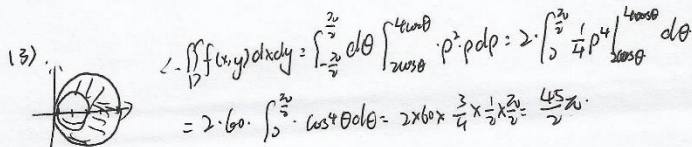 (3). ∴ ∬_D f(x,y)dxdy = ∫_{-π/2}^{π/2} dθ ∫_{2cosθ}^{4cosθ} ·ρ²·ρdρ = 2·∫_0^{π/2} 1/4 ρ⁴ |_{2cosθ}^{4cosθ} dθ
= 2·60·∫_0^{π/2}·cos⁴θdθ = 2×60×3/4×1/2×π/2 = 45/2 π.